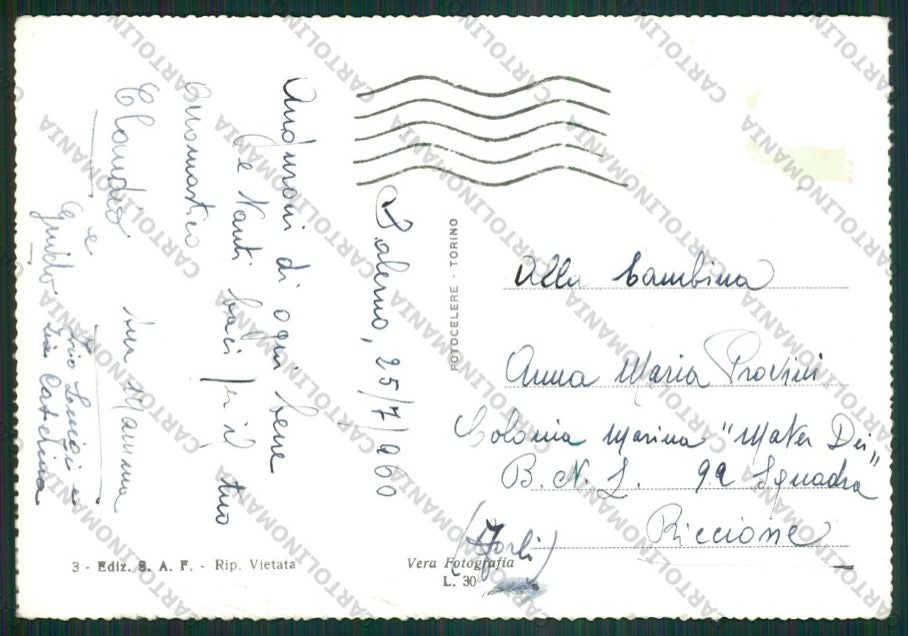 Salerno, 25/7/960
Auguroni di ogni bene
e tanti baci per il tuo
onomastico
tua Mamma
Claudio
e
Guido
Zio Luigi e
Zia Caterina
FOTOCELERE - TORINO
Alla bambina
Anna Maria
Colonia Marina "Mater Dei"
B. N. L. 9a Squadra
Riccione
(Forlì)
3 - Ediz. S. A. F. - Rip. Vietata
Vera Fotografia
L. 30
CARTOLINOMANIA